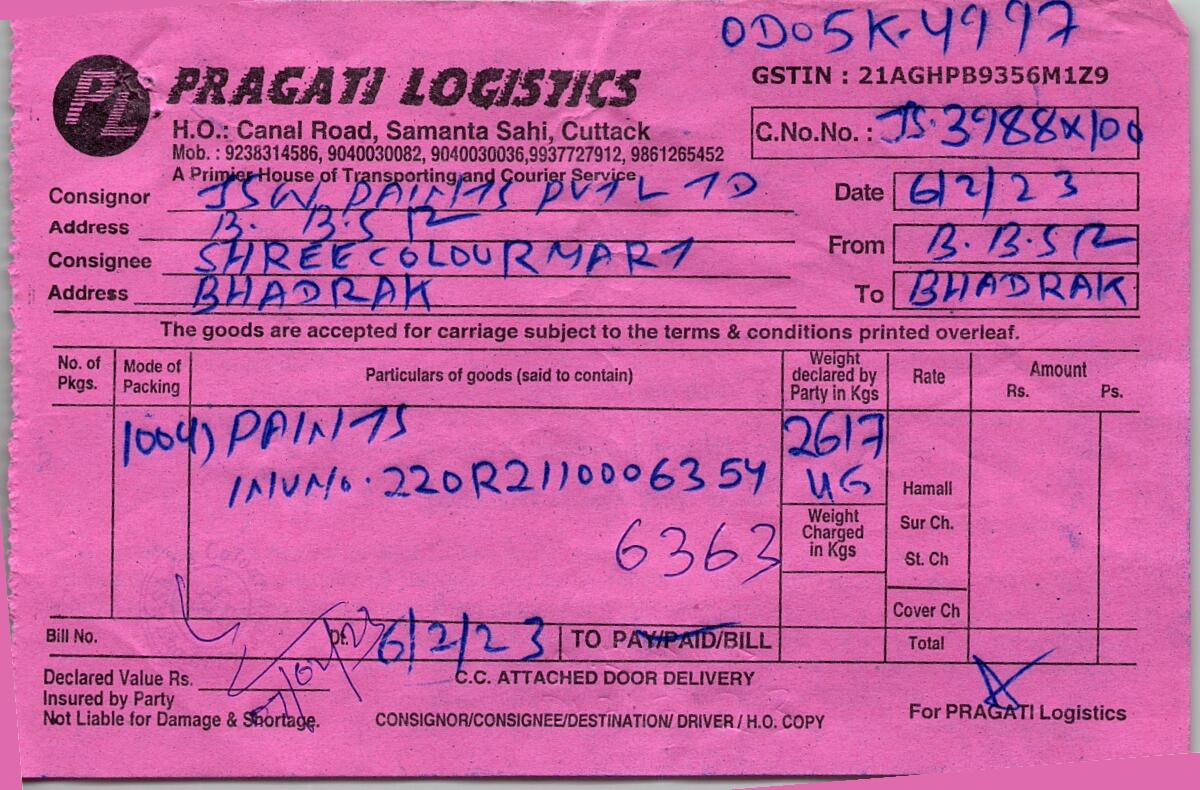 OD05K-4997
PRAGATI LOGISTICS
GSTIN : 21AGHPB9356M1Z9
H.O.: Canal Road, Samanta Sahi, Cuttack
C.No.No. : JS-3988x100
Mob. : 9238314586, 9040030082, 9040030036,9937727912, 9861265452
A Primier House of Transporting and Courier Service
Consignor JSW PAINTS PVT LTD
Date 6/2/23
Address B.B.S.R
From B.B.S R
Consignee SHREE COLOUR MART
Address BHADRAK
To BHADRAK
The goods are accepted for carriage subject to the terms & conditions printed overleaf.
No. of Pkgs. Mode of Packing Particulars of goods (said to contain) Weight declared by Party in Kgs Rate Amount Rs. Ps.
100(4) PAINTS 2617
INVNo. 220R2110006354 UG
Hamali
6363 Weight Charged in Kgs
Sur Ch.
St. Ch
Cover Ch
Bill No. Dt. 6/2/23 TO PAY/PAID/BILL Total
07/02/23
Declared Value Rs.
C.C. ATTACHED DOOR DELIVERY
Insured by Party
Not Liable for Damage & Shortage.
CONSIGNOR/CONSIGNEE/DESTINATION/ DRIVER / H.O. COPY
For PRAGATI Logistics